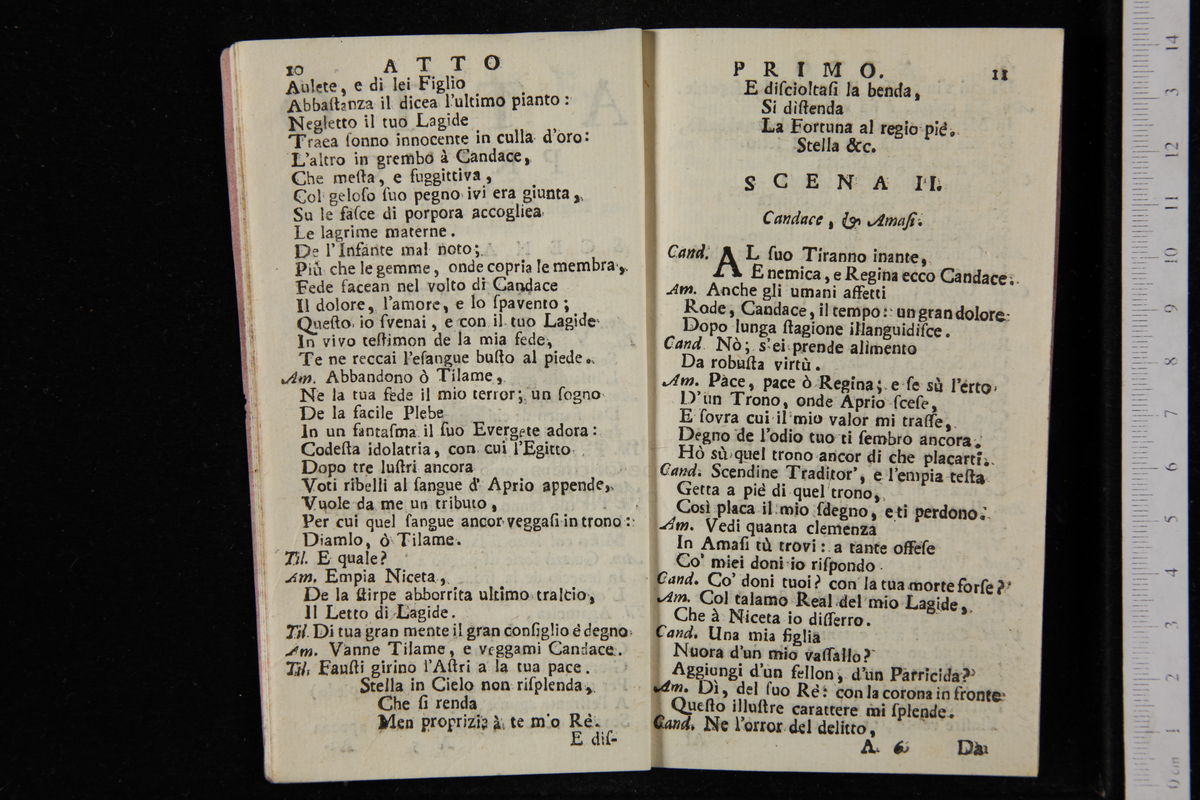 10 ATTO
Aulete, e di lei Figlio
Abbaſtanza il dicea l'ultimo pianto:
Negletto il tuo Lagide
Traea ſonno innocente in culla d'oro:
L'altro in grembo à Candace,
Che meſta, e fuggittiva,
Col geloſo ſuo pegno ivi era giunta,
Su le faſce di porpora accogliea
Le lagrime materne.
De l'Infante mal noto;
Più che le gemme, onde copria le membra,
Fede facean nel volto di Candace
Il dolore, l'amore, e lo ſpavento;
Queſto io ſvenai, e con il tuo Lagide
In vivo teſtimon de la mia fede,
Te ne reccai l'eſangue buſto al piede.
Am. Abbandono ò Tilame,
Ne la tua fede il mio terror; un ſogno
De la facile Plebe
In un fantaſma il ſuo Evergete adora:
Codeſta idolatria, con cui l'Egitto
Dopo tre luſtri ancora
Voti ribelli al ſangue d' Aprio appende,
Vuole da me un tributo,
Per cui quel ſangue ancor veggaſi in trono:
Diamlo, ò Tilame.
Til. E quale?
Am. Empia Niceta,
De la ſtirpe abborrita ultimo tralcio,
Il Letto di Lagide.
Til. Di tua gran mente il gran conſiglio è degno
Am. Vanne Tilame, e veggami Candace.
Til. Fauſti girino l'Aſtri a la tua pace.
Stella in Cielo non riſplenda,
Che ſi renda
Men proprizia à te mio Rè.
E diſ-
PRIMO. 11
E diſcioltaſi la benda,
Si diſtenda
La Fortuna al regio piè.
Stella &c.
SCENA II.
Candace, & Amaſi.
Cand. AL ſuo Tiranno inante,
E nemica, e Regina ecco Candace.
Am. Anche gli umani affetti
Rode, Candace, il tempo: un gran dolore
Dopo lunga ſtagione illanguidiſce.
Cand Nò; s'ei prende alimento
Da robuſta virtù.
Am. Pace, pace ò Regina; e ſe sù l'erto
D'un Trono, onde Aprio ſceſe,
E ſovra cui il mio valor mi traſſe,
Degno de l'odio tuo ti ſembro ancora,
Hò sù quel trono ancor di che placarti.
Cand. Scendine Traditor', e l'empia teſta
Getta a piè di quel trono,
Così placa il mio ſdegno, e ti perdono.
Am. Vedi quanta clemenza
In Amaſi tù trovi: a tante offeſe
Co' miei doni io riſpondo
Cand. Co' doni tuoi? con la tua morte forſe?
Am. Col talamo Real del mio Lagide,
Che à Niceta io differro.
Cand. Una mia figlia
Nuora d'un mio vaſſallo?
Aggiungi d'un fellon, d'un Parricida?
Am. Dì, del ſuo Rè: con la corona in fronte
Queſto illuſtre carattere mi ſplende.
Cand. Ne l'orror del delitto,
A 6 Da